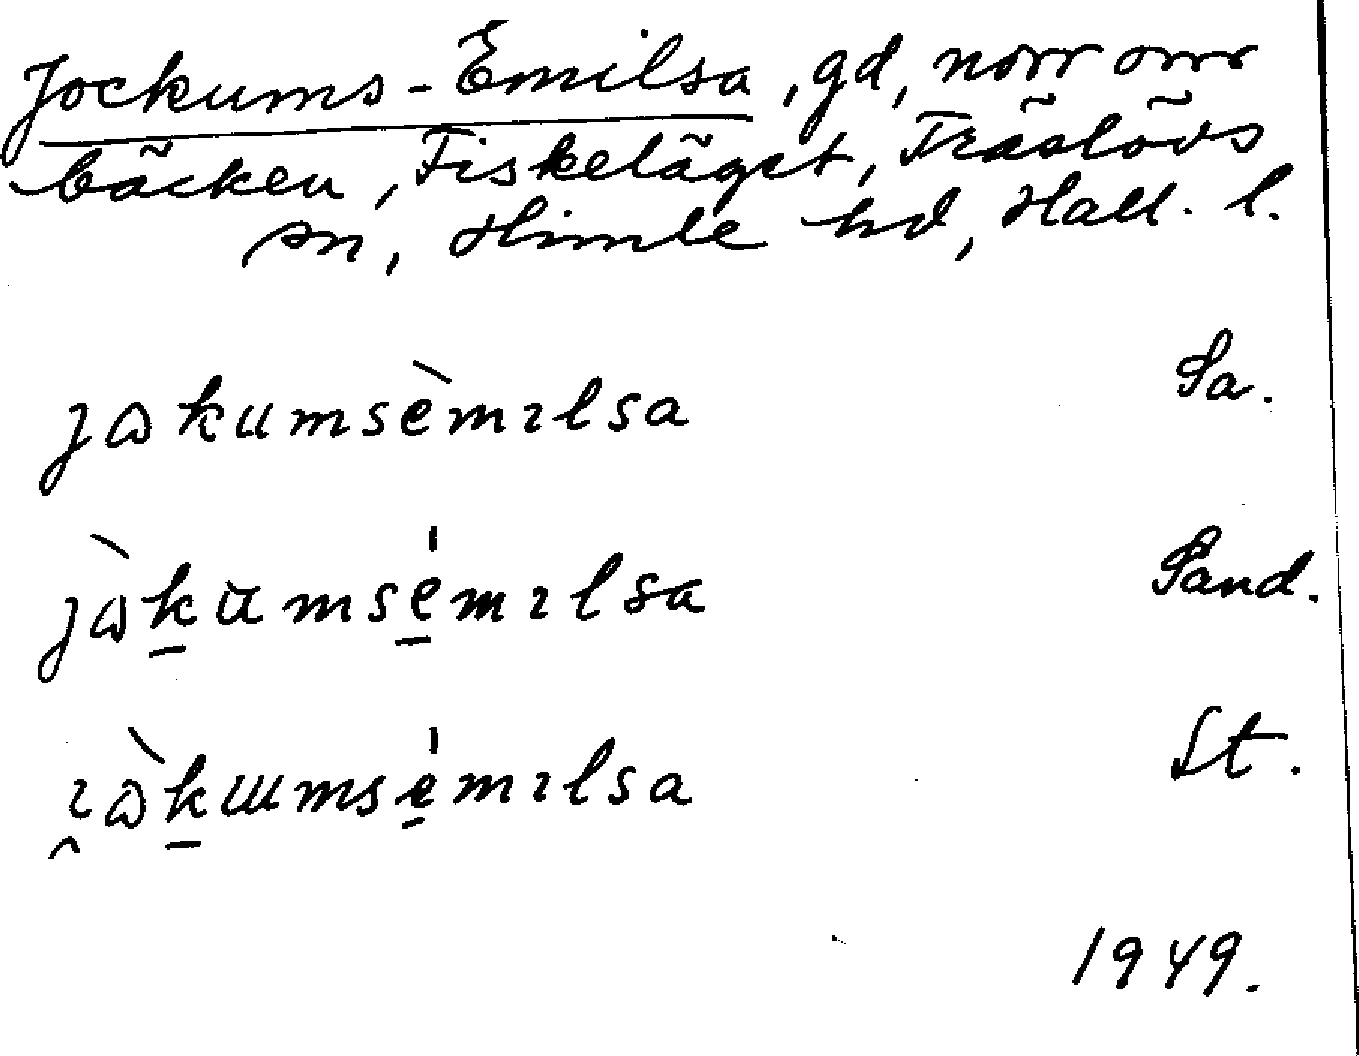 Jockums-Emilsa, gd, norr om
bäcken, Fiskeläget, Träslövs
sn, Himle hd, Hall. l.
jɷkumsèmılsa Sa.
jɷ̀kumsémılsa Sand.
ı̯ɷ̀kɯmsémılsa St.
1949.